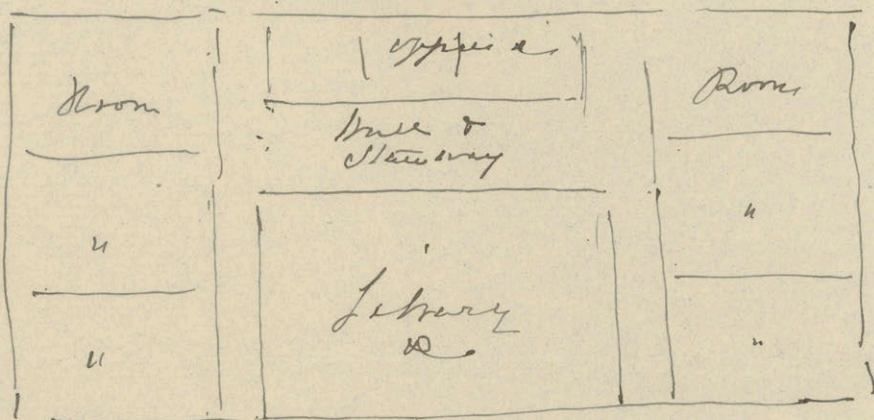 Room
"
"
Offices
Hall &
Stairway
Library
&
Room
"
"